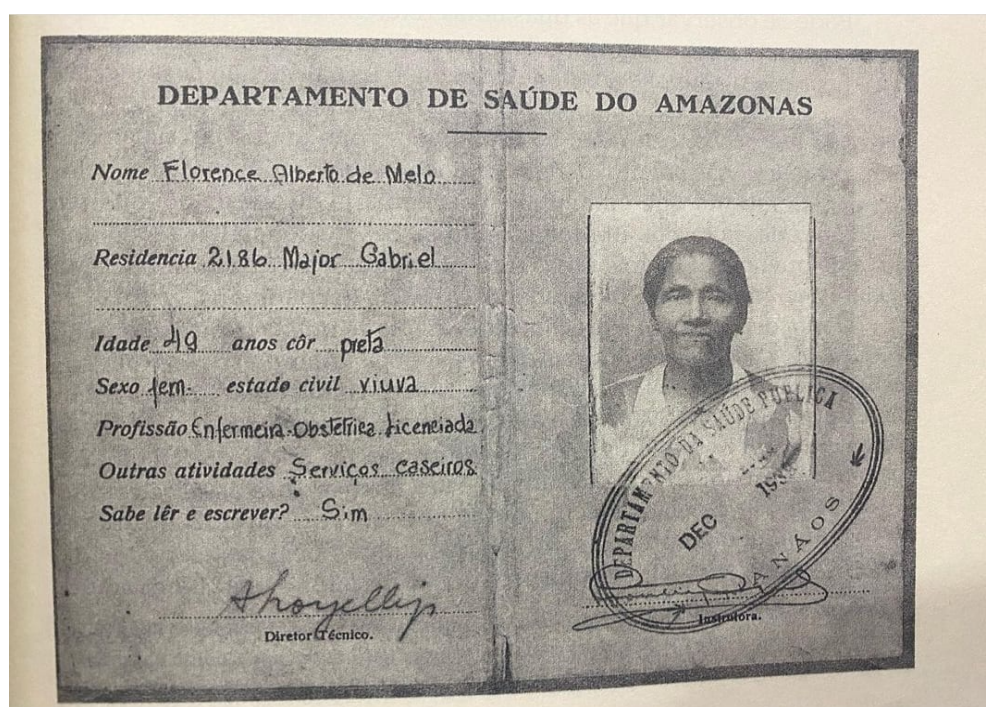 DEPARTAMENTO DE SAÚDE DO AMAZONAS
Nome Florence Alberto de Melo
Residencia 2186 Major Gabriel
Idade 49 anos côr preta
Sexo fem. estado civil viuva
Profissão Enfermeira Obstetrica Licenciada
Outras atividades Serviços caseiros
Sabe lêr e escrever? Sim
Diretor Técnico.
DEPARTAMENTO DA SAÚDE PUBLICA
DEC
MANÁOS
Instrutora.